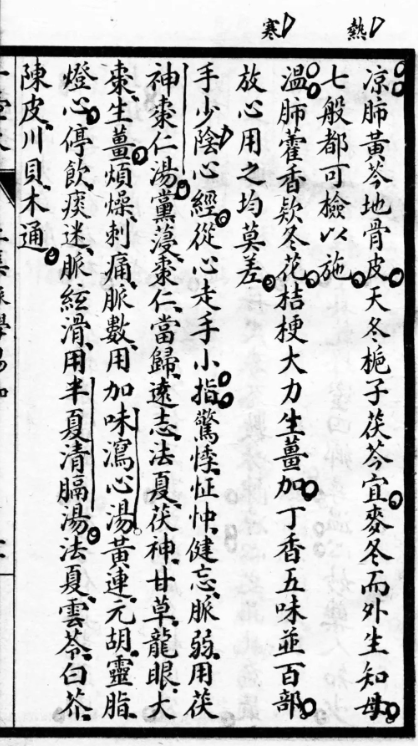 熱
寒
凉肺黃芩地骨皮天冬梔子茯苓宜麥冬而外生知母
七般都可檢以施
溫肺藿香欵冬花桔梗大力生薑加丁香五味並百部
放心用之均莫差
手少陰心經從心走手小指驚悸怔忡健忘脈弱用茯
神棗仁湯黨蓡棗仁當歸遠志法夏茯神甘草龍眼大
棗生薑煩燥刺痛脈數用加味瀉心湯黃連元胡靈脂
燈心停飲痰迷脈絃滑用半夏清膈湯法夏雲苓白芥
陳皮川貝木通